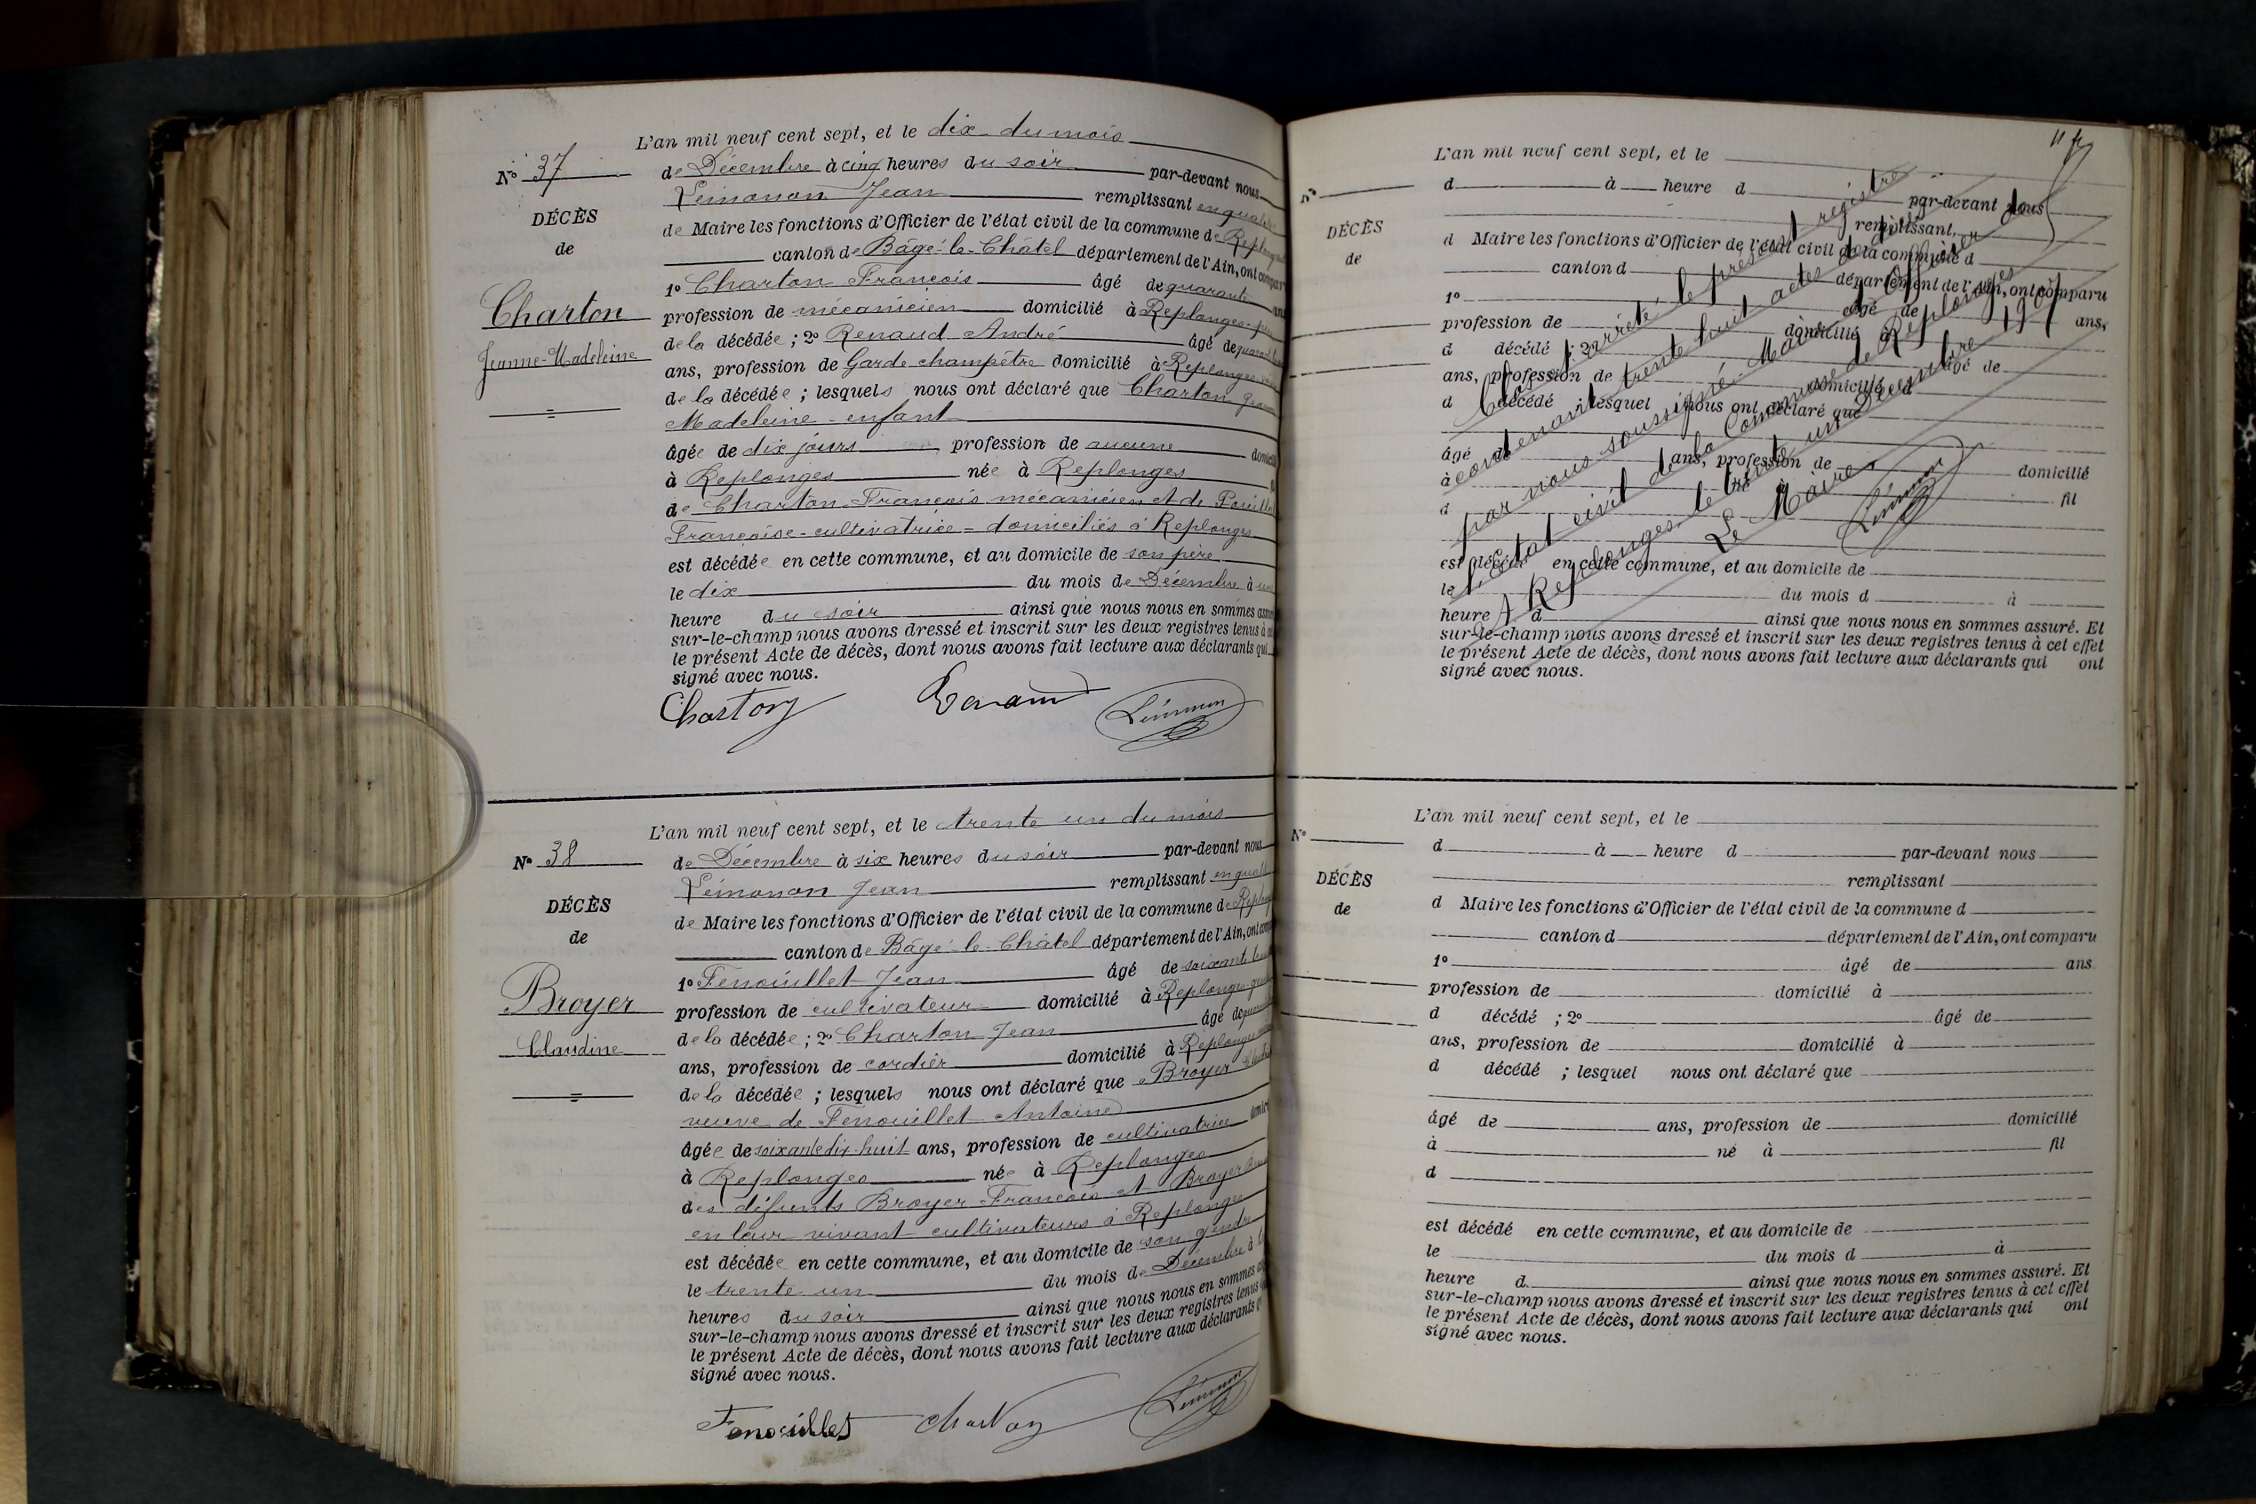 L'an mil neuf cent sept, et le dix du mois
N° 37
de Décembre à cinq heures du soir par-devant nous
Jean remplissant en qualité
DÉCÈS
de Maire les fonctions d'Officier de l'état civil de la commune de
de
canton de Bâgé-le-Châtel département de l'Ain, ont
Charton
1° Charton François âgé de quarante
profession de mécanicien domicilié à Replonges
Jeanne-Madeleine
de la décédée ; 2° Renaud André âgé de
ans, profession de Garde champêtre domicilié à Replonges
de la décédée ; lesquels nous ont déclaré que Charton
Madeleine enfant
âgée de dix jours profession de aucune
à Replonges née à Replonges
de Charton François mécanicien et de
Françoise cultivatrice = domiciliés à Replonges
est décédée en cette commune, et au domicile de son père
le dix du mois de Décembre à
heure du soir ainsi que nous nous en sommes
sur-le-champ nous avons dressé et inscrit sur les deux registres tenus à
le présent Acte de décès, dont nous avons fait lecture aux déclarants qui
signé avec nous.
Charton Renaud
L'an mil neuf cent sept, et le trente un du mois
N° 38
de Décembre à six heures du soir par-devant nous
Jean remplissant en qualité
DÉCÈS
de Maire les fonctions d'Officier de l'état civil de la commune de
de
canton de Bâgé-le-Châtel département de l'Ain, ont
Broyer
1° Fenouillet Jean âgé de soixante
profession de cultivateur domicilié à Replonges
Claudine
de la décédée ; 2° Charton Jean âgé de
ans, profession de cordier domicilié à Replonges
de la décédée ; lesquels nous ont déclaré que Broyer
veuve de Fenouillet Antoine
âgée de soixante dix-huit ans, profession de cultivatrice
à Replonges née à Replonges
des défunts Broyer François et Broyer
en leur vivant cultivateurs à Replonges
est décédée en cette commune, et au domicile de son gendre
le trente un du mois de Décembre à
heures du soir ainsi que nous nous en sommes
sur-le-champ nous avons dressé et inscrit sur les deux registres tenus
le présent Acte de décès, dont nous avons fait lecture aux déclarants
signé avec nous.
Fenouillet Charton
L'an mil neuf cent sept, et le
N°
d à heure d par-devant nous
remplissant
DÉCÈS
d Maire les fonctions d'Officier de l'état civil de la commune d
de
canton d département de l'Ain, ont comparu
1° âgé de ans,
profession de domicilié à
d décédé ; 2° âgé de
ans, profession de domicilié à
d décédé ; lesquel nous ont déclaré que
âgé de ans, profession de domicilié
à né à fil
d
est décédé en cette commune, et au domicile de
le du mois d à
heure d ainsi que nous nous en sommes assuré. Et
sur-le-champ nous avons dressé et inscrit sur les deux registres tenus à cet effet
le présent Acte de décès, dont nous avons fait lecture aux déclarants qui ont
signé avec nous.
Clos et arrêté le présent registre
contenant trente huit actes de décès
par nous soussigné Maire et Officier de
l'état civil de la Commune de Replonges
A Replonges le trente un Décembre 1907
Le Maire
L'an mil neuf cent sept, et le
N°
d à heure d par-devant nous
remplissant
DÉCÈS
d Maire les fonctions d'Officier de l'état civil de la commune d
de
canton d département de l'Ain, ont comparu
1° âgé de ans
profession de domicilié à
d décédé ; 2° âgé de
ans, profession de domicilié à
d décédé ; lesquel nous ont déclaré que
âgé de ans, profession de domicilié
à né à fil
d
est décédé en cette commune, et au domicile de
le du mois d à
heure d ainsi que nous nous en sommes assuré. Et
sur-le-champ nous avons dressé et inscrit sur les deux registres tenus à cet effet
le présent Acte de décès, dont nous avons fait lecture aux déclarants qui ont
signé avec nous.